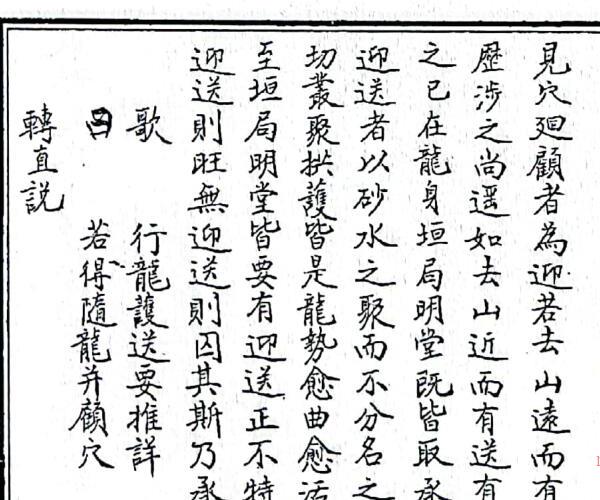 見穴廻顧者為迎若去山遠而有
歷涉之尚遥如去山近而有送有
之已在龍身垣局明堂既皆取承
迎送者以砂水之聚而不分名之
切叢聚拱護皆是龍勢愈曲愈活
至垣局明堂皆要有迎送正不特
迎送則旺無迎送則囚其斯乃承
歌　行龍護送要推詳
曰　若得隨龍并顧穴
轉直説